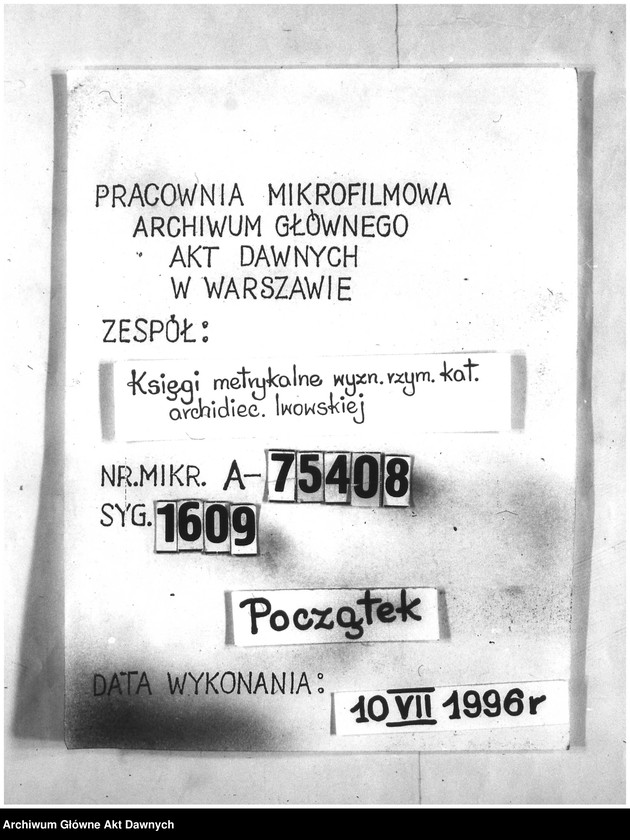 PRACOWNIA MIKROFILMOWA
ARCHIWUM GŁÓWNEGO
AKT DAWNYCH
W WARSZAWIE
ZESPÓŁ:
Księgi metrykalne wyzn. rzym. kat.
archidiec. lwowskiej
NR. MIKR. A-75408
SYG. 1609
Początek
DATA WYKONANIA:
10 VII 1996 r
Archiwum Główne Akt Dawnych